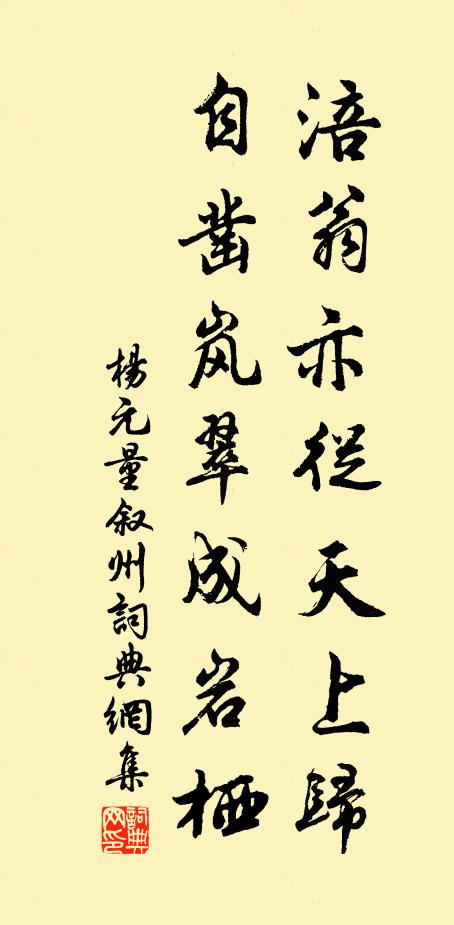 涪翁亦從天上歸
自鑿岚翠成岩栖
楊元量叙州詞典網集
詞典网印